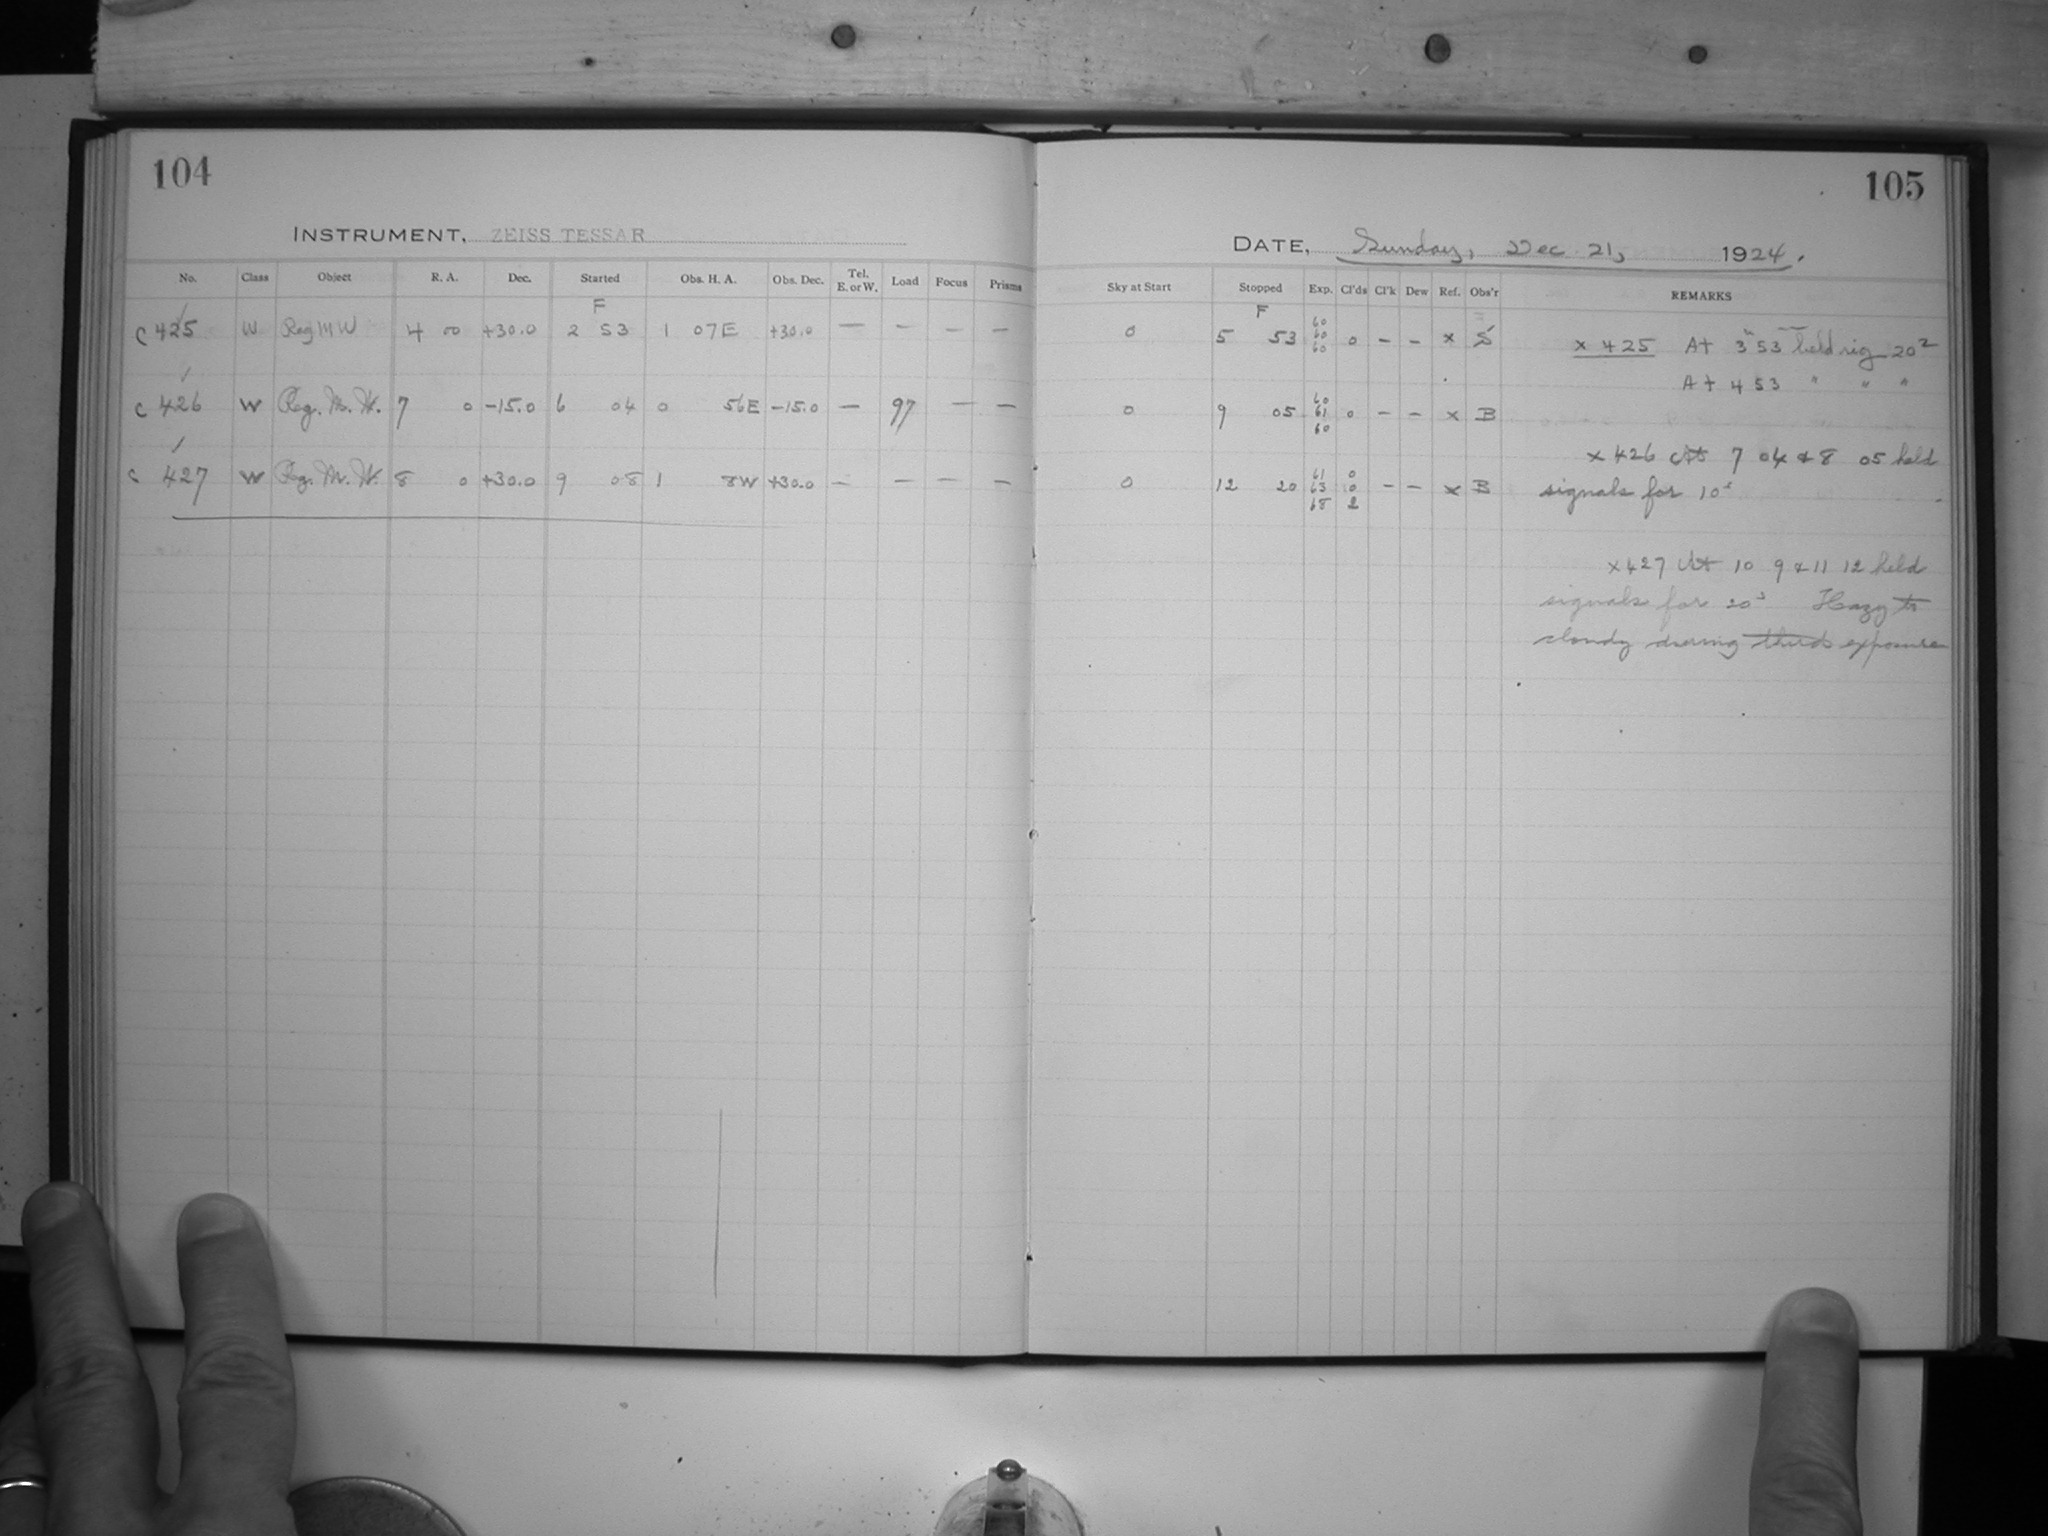 104
INSTRUMENT, ZEISS TESSAR
No. Class Object R. A. Dec. Started Obs. H. A. Obs. Dec. Tel. E. or W. Load Focus Prisms
F
C 425 W Reg MW 4 00 +30.0 2 53 1 07E +30.0 — — — —
C 426 W Reg. M. W. 7 0 -15.0 6 04 0 56E -15.0 — 97 — —
C 427 W Reg. M. W. 8 0 +30.0 9 08 1 8W +30.0 — — — —
105
DATE, Sunday, Dec 21, 1924.
Sky at Start Stopped Exp. Cl'ds Cl'k Dew Ref. Obs'r REMARKS
F
0 5 53 60 60 60 0 — — x S
x 425 At 3 53 held rig 20
At 4 53 " " "
0 9 05 60 61 60 0 — — x B
x 426 At 7 04 & 8 05 held
signals for 10s
0 12 20 61 63 68 0 0 2 — — x B
x 427 At 10 9 & 11 12 held
signals for 20s Hazy to
cloudy during third exposure